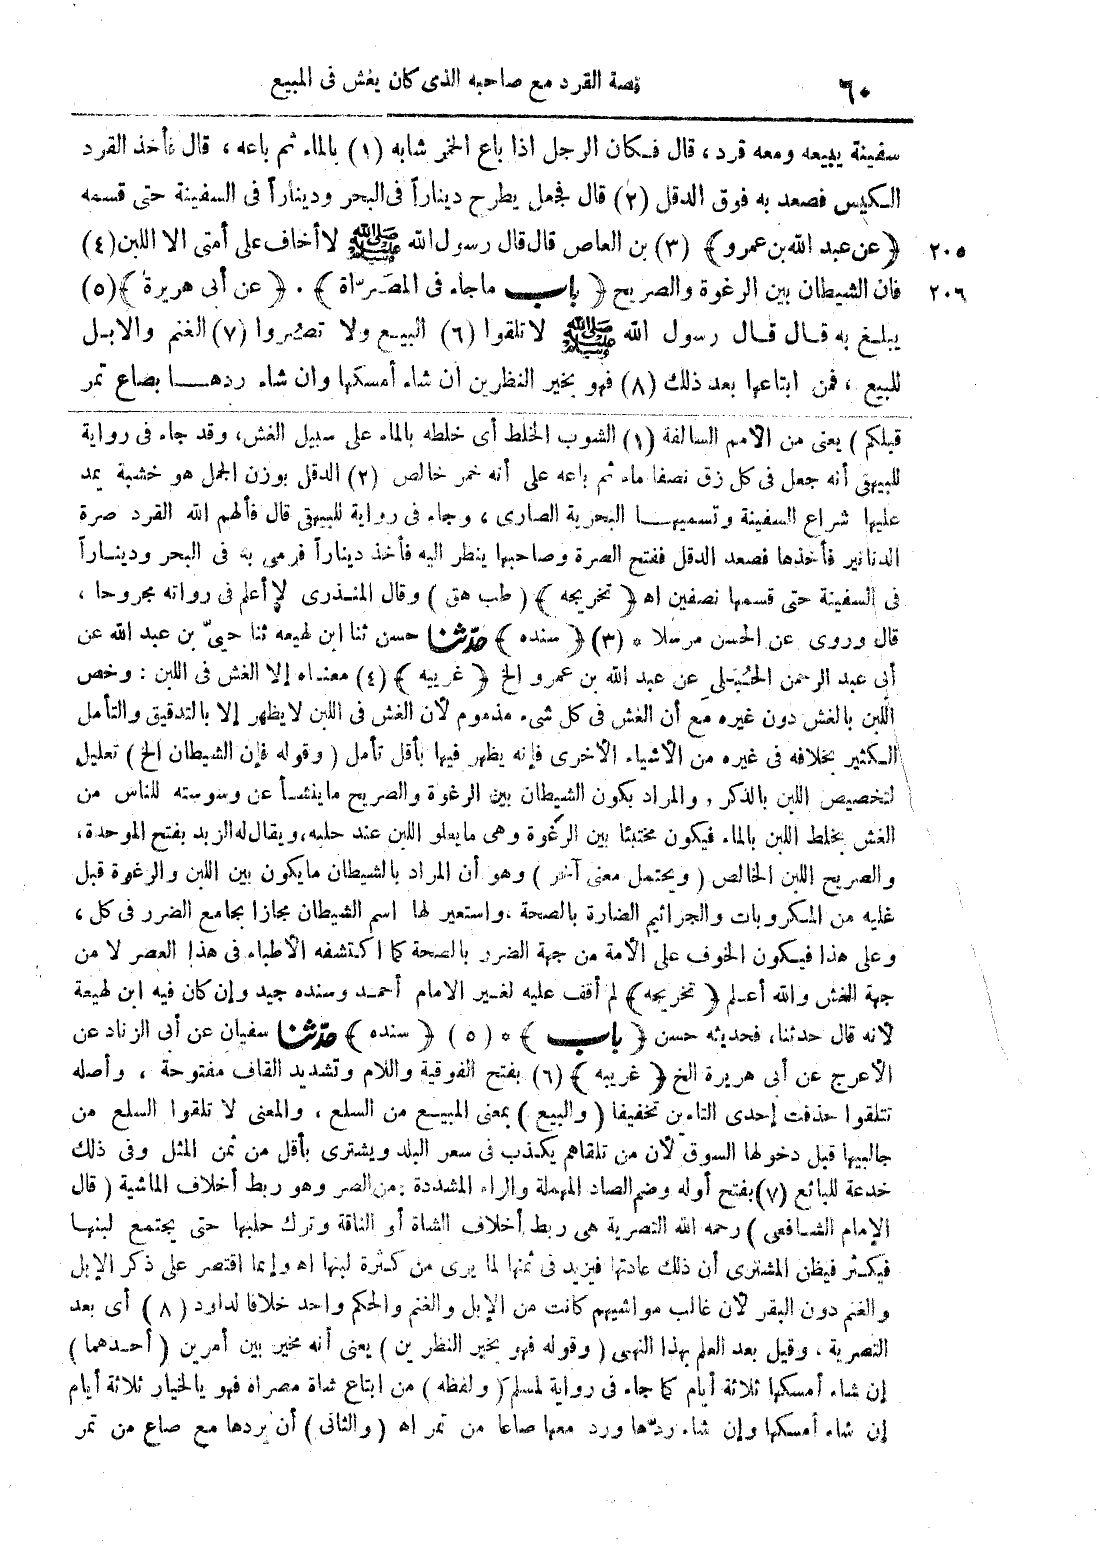 ٦٠ قصة القرد مع صاحبه الذى كان يغش فى المبيع
سفينة يبيعه ومعه قرد، قال فكان الرجل اذا باع الخمر شابه (١) بالماء ثم باعه، قال فأخذ القرد
الكيس فصعد به فوق الدقل (٢) قال فجعل يطرح ديناراً فى البحر وديناراً فى السفينة حتى قسمه
٢٠٥ ﴿عن عبد الله بن عمرو﴾ (٣) بن العاص قال قال رسول الله ﷺ لا أخاف على أمتى الا اللبن (٤)
٢٠٦ فان الشيطان بين الرغوة والصريح ﴿باب ماجاء فى المصرّاة﴾ . ﴿عن أبى هريرة﴾ (٥)
يبلغ به قال قال رسول الله ﷺ لا تلقوا (٦) البيع ولا تصُروا (٧) الغنم والابل
للبيع، فمن ابتاعها بعد ذلك (٨) فهو بخير النظرين ان شاء أمسكها وان شاء ردها بصاع تمر
قبلكم) يعنى من الأمم السالفة (١) الشوب الخلط أى خلطه بالماء على سبيل الغش، وقد جاء فى رواية
للبيهقى أنه جعل فى كل زق نصفا ماء ثم باعه على أنه خمر خالص (٢) الدقل بوزن الجمل هو خشبة يمد
عليها شراع السفينة وتسميها البحرية الصارى، وجاء فى رواية للبيهقى قال فألهم الله القرد صرة
الدنانير فأخذها فصعد الدقل ففتح الصرة وصاحبها ينظر اليه فأخذ ديناراً فرمى به فى البحر وديناراً
فى السفينة حتى قسمها نصفين اه ﴿تخريجه﴾ (طب هق) وقال المنذرى لا أعلم فى رواته مجروحا،
قال وروى عن الحسن مرسلا * (٣) ﴿سنده﴾ حدّثنا حسن ثنا ابن لهيعة ثنا حييّ بن عبد الله عن
أبى عبد الرحمن الحُبُلى عن عبد الله بن عمرو الخ ﴿غريبه﴾ (٤) معناه إلا الغش فى اللبن : وخص
اللبن بالغش دون غيره مع أن الغش فى كل شىء مذموم لأن الغش فى اللبن لا يظهر إلا بالتدقيق والتأمل
الكثير بخلافه فى غيره من الأشياء الأخرى فإنه يظهر فيها بأقل تأمل (وقوله فإن الشيطان الخ) تعليل
لتخصيص اللبن بالذكر، والمراد بكون الشيطان بين الرغوة والصريح ما ينشأ عن وسوسته للناس من
الغش بخلط اللبن بالماء فيكون مختبئا بين الرغوة وهى مايعلو اللبن عند حلبه، ويقال له الزبد بفتح الموحدة،
والصريح اللبن الخالص (ويحتمل معنى آخر) وهو أن المراد بالشيطان مايكون بين اللبن والرغوة قبل
غليه من المكروبات والجراثيم الضارة بالصحة، واستعير لها اسم الشيطان مجازا بجامع الضرر فى كل،
وعلى هذا فيكون الخوف على الأمة من جهة الضرر بالصحة كما اكتشفه الأطباء فى هذا العصر لا من
جهة الغش والله أعلم ﴿تخريجه﴾ لم أقف عليه لغير الامام أحمد وسنده جيد وإن كان فيه ابن لهيعة
لأنه قال حدثنا، فحديثه حسن ﴿باب﴾ * (٥) ﴿سنده﴾ حدّثنا سفيان عن أبى الزناد عن
الأعرج عن أبى هريرة الخ ﴿غريبه﴾ (٦) بفتح الفوقية واللام وتشديد القاف مفتوحة، وأصله
تتلقوا حذفت إحدى التاءين تخفيفا (والبيع) بمعنى المبيع من السلع، والمعنى لا تلقوا السلع من
جالبيها قبل دخولها السوق لأن من تلقاهم يكذب فى سعر البلد ويشترى بأقل من ثمن المثل وفى ذلك
خدعة للبائع (٧) بفتح أوله وضم الصاد المهملة والراء المشددة : من الصر وهو ربط أخلاف الماشية (قال
الإمام الشافعى) رحمه الله التصرية هى ربط أخلاف الشاة أو الناقة وترك حلبها حتى يجتمع لبنها
فيكثر فيظن المشترى أن ذلك عادتها فيزيد فى ثمنها لما يرى من كثرة لبنها اه وإنما اقتصر على ذكر الإبل
والغنم دون البقر لأن غالب مواشيهم كانت من الإبل والغنم والحكم واحد خلافا لداود (٨) أى بعد
التصرية، وقيل بعد العلم بهذا النهى (وقوله فهو بخير النظرين) يعنى أنه مخير بين أمرين (أحدهما)
إن شاء أمسكها ثلاثة أيام كما جاء فى رواية لمسلم (ولفظه) من ابتاع شاة مصراة فهو بالخيار ثلاثة أيام
إن شاء أمسكها وإن شاء ردّها ورد معها صاعا من تمر اه (والثانى) أن يردها مع صاع من تمر